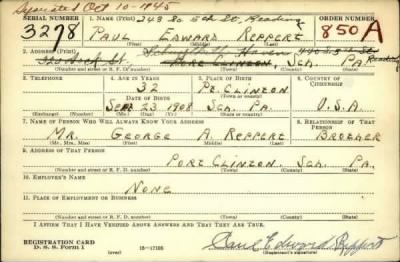 Separated Oct 10-1945
SERIAL NUMBER 1. NAME (Print) 243 So. 5th St. Reading ORDER NUMBER
3278 PAUL EDWARD REPPERT 850A
(First) (Middle) (Last)
2. ADDRESS (Print) Haven
PORT CLINTON, SCH. PA. Reading
(Number and street or R. F. D. number) (Town) (County) (State)
3. TELEPHONE 4. AGE IN YEARS 5. PLACE OF BIRTH 6. COUNTRY OF CITIZENSHIP
32 PT. CLINTON
DATE OF BIRTH (Town or county)
SEP. 23 1908 SCH. PA. U.S.A.
(Exchange) (Number) (Mo.) (Day) (Yr.) (State or country)
7. NAME OF PERSON WHO WILL ALWAYS KNOW YOUR ADDRESS 8. RELATIONSHIP OF THAT PERSON
MR. GEORGE A. REPPERT BROTHER
(Mr., Mrs., Miss) (First) (Middle) (Last)
9. ADDRESS OF THAT PERSON
PORT CLINTON, SCH. PA.
(Number and street or R. F. D. number) (Town) (County) (State)
10. EMPLOYER'S NAME
NONE
11. PLACE OF EMPLOYMENT OR BUSINESS
(Number and street or R. F. D. number) (Town) (County) (State)
I AFFIRM THAT I HAVE VERIFIED ABOVE ANSWERS AND THAT THEY ARE TRUE.
REGISTRATION CARD
D. S. S. Form 1 (over) 16-17105 Paul Edward Reppert
(Registrant's signature)